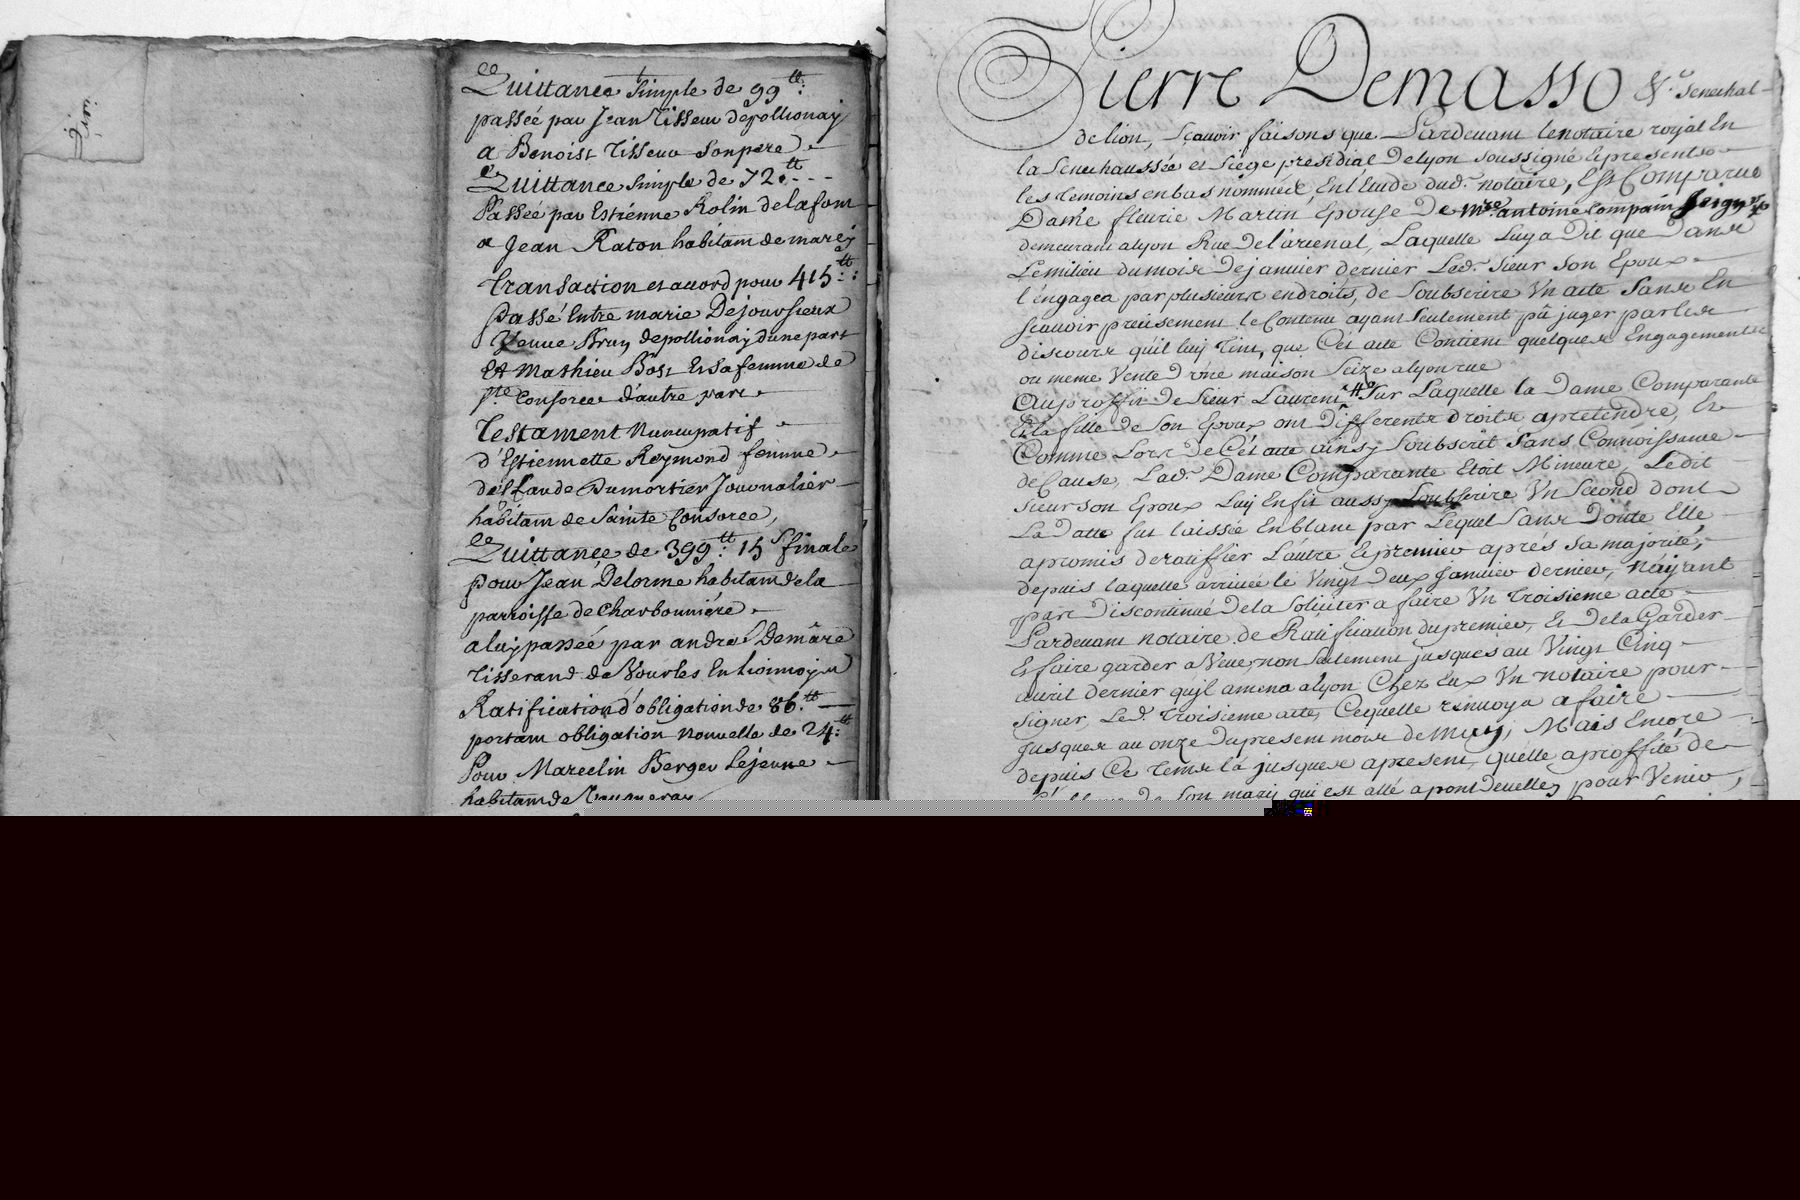 Quittance simple de 99ᵗᵗ:
passée par Jean Tisseur depollionay
a Benoist Tisseur Sonpere
Quittance simple de 72ᵗᵗ
Passée par Estienne Rolin delafont
a Jean Raton habitant de marcy
transaction et accord pour 415ᵗᵗ:
Passé Entre marie Dejoursieux
Veuve Brun depollionay dune part
Et Mathieu Bost Et Sa femme de
Sᵗᵉ Consorce d'autre part
Testament Nuncupatif
d'Estiennette Reymond femme
de Claude Dumortier Journalier
habitant de Sainte Consorce,
Quittance de 399ᵗᵗ: 15ˢ finale
pour Jean Delorme habitant dela
parroisse de charbonniere
a luy passée par andré Demare
Tisserand de Vourles En lionnoys
Ratification d'obligation de 86ᵗᵗ
portant obligation nouvelle de 24:ᵗᵗ
Pour Marcelin Berger Lejeune
habitant de
Pierre Demasso &ʳ. Senechal
de lion, Sçavoir faisons que Pardevant lenotaire royal En
la Senechaussée et Siége présidial Delyon soussigné Epresents
les temoins enbas nommés, En l'Etude dudᵗ. notaire, Est Comparue
Dame fleurie Martin, Epouse De mʳᵉ antoine Compain
demeurant alyon Rue De l'arcenal, Laquelle Luy a Dit que Dans
Lemilieu dumois Dejanvier dernier Ledᵗ. Sieur Son Epoux
l'engagea par plusieurs endroits, de Soubscrire Vn acte Sans En
Scavoir precisement le Contenu ayant Seulement pû juger par les
discours qu'il luy Tint, que Cet acte Contient quelques Engagements
ou meme Vente D'une maison Scize alyon rue
Au proffit De Sieur Laurent Sur Laquelle la Dame Comparante
Et la fille De Son Epoux ont Differents droits apretendre, Et
Comme Lors de Cét acte ainsy Soubscrit Sans Connoissance
de Cause, Ladᵗ. Dame Comparante Etoit Mineure, Ledit
Sieur son Epoux Luy En fit aussy Soubscrire Vn Second dont
La Datte fut laissée En blanc par Lequel Sans Doute Elle
apromis deratiffier L'autre Epremier aprés Sa majorité,
depuis laquelle arrivée le Vingt Deux Janvier dernier, nayant
pas Discontinué Dela Soliciter a faire Vn Troisieme acte
Pardevant notaire de Ratification dupremier, Et Dela Garder
Et faire garder a Veue, non Seulement jusques au Vingt Cinq
avril dernier quil amena alyon Chez Eux Vn notaire pour
signer, Ledᵗ. Troisieme acte, Cequelle renvoya afaire
Jusques au onze Dupresent mois de May, Mais Encore
depuis Ce Tems lá jusques apresent, quelle aproffité de
de Son mary qui est allé apontdeuelles pour Venir,